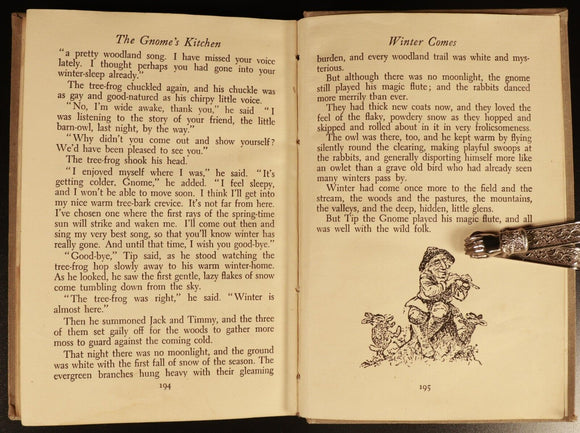 The Gnome's Kitchen
"a pretty woodland song. I have missed your voice
lately. I thought perhaps you had gone into your
winter-sleep already."
The tree-frog chuckled again, and his chuckle was
as gay and good-natured as his chirpy little voice.
"No, I'm wide awake, thank you," he said "I
was listening to the story of your friend, the little
barn-owl, last night, by the way."
"Why didn't you come out and show yourself?
We'd have been pleased to see you."
The tree-frog shook his head.
"I enjoyed myself where I was," he said. "It's
getting colder, Gnome," he added. "I feel sleepy,
and I won't be able to move soon. I think I'll get into
my nice warm tree-bark crevice. It's not far from here.
I've chosen one where the first rays of the spring-time
sun will strike and waken me. I'll come out then and
sing my very best song, so that you'll know winter has
really gone. And until that time, I wish you good-bye."
"Good-bye," Tip said, as he stood watching the
tree-frog hop slowly away to his warm winter-home.
As he looked, he saw the first gentle, lazy flakes of snow
come tumbling down from the sky.
"The tree-frog was right," he said. "Winter is
almost here."
Then he summoned Jack and Timmy, and the three
of them set gaily off for the woods to gather more
moss to guard against the coming cold.
That night there was no moonlight, and the ground
was white with the first fall of snow of the season. The
evergreen branches hung heavy with their gleaming
194
Winter Comes
burden, and every woodland trail was white and mys-
terious.
But although there was no moonlight, the gnome
still played his magic flute; and the rabbits danced
more merrily than ever.
They had thick new coats now, and they loved the
feel of the flaky, powdery snow as they hopped and
skipped and rolled about in it in very frolicsomeness.
The owl was there, too, and he kept warm by flying
silently round the clearing, making playful swoops at
the rabbits, and generally disporting himself more like
an owlet than a grave old bird who had already seen
many winters pass by.
Winter had come once more to the field and the
stream, the woods and the pastures, the mountains,
the valleys, and the deep, hidden, little glens.
But Tip the Gnome played his magic flute, and all
was well with the wild folk.
195